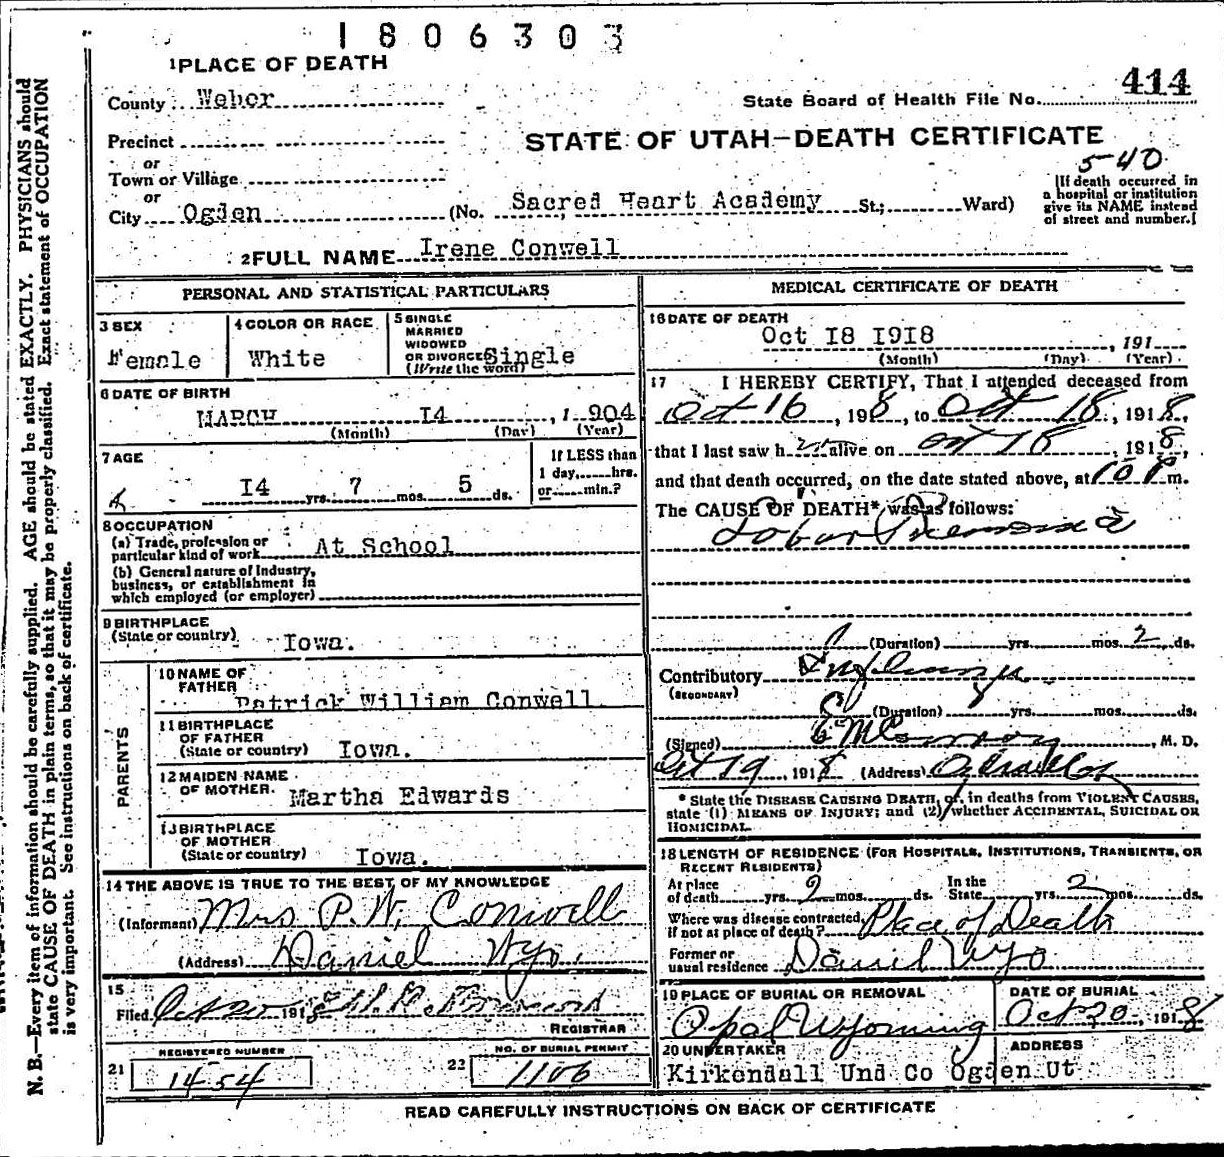 1806303
1 PLACE OF DEATH
414
County Weber
State Board of Health File No.
Precinct
STATE OF UTAH—DEATH CERTIFICATE
or
540
Town or Village
or
City Ogden (No. Sacred Heart Academy St.; Ward)
[If death occurred in
a hospital or institution
give its NAME instead
of street and number.]
2 FULL NAME Irene Conwell
PERSONAL AND STATISTICAL PARTICULARS
3 SEX
Female
4 COLOR OR RACE
White
5 SINGLE
MARRIED
WIDOWED
OR DIVORCED Single
(Write the word)
6 DATE OF BIRTH
MARCH 14, 1904
(Month) (Day) (Year)
7 AGE
14 yrs. 7 mos. 5 ds.
If LESS than
1 day, hrs.
or min.?
8 OCCUPATION
(a) Trade, profession or
particular kind of work At School
(b) General nature of Industry,
business, or establishment in
which employed (or employer)
9 BIRTHPLACE
(State or country) Iowa.
PARENTS
10 NAME OF
FATHER Patrick William Conwell
11 BIRTHPLACE
OF FATHER
(State or country) Iowa.
12 MAIDEN NAME
OF MOTHER. Martha Edwards
13 BIRTHPLACE
OF MOTHER
(State or country) Iowa.
14 THE ABOVE IS TRUE TO THE BEST OF MY KNOWLEDGE
(Informant) Mrs P.W. Conwell
(Address) Daniel Wyo.
15
Filed Oct 20 1918
REGISTRAR
REGISTERED NUMBER
21 1454
NO. OF BURIAL PERMIT
22 1106
MEDICAL CERTIFICATE OF DEATH
16 DATE OF DEATH
Oct 18 1918, 191
(Month) (Day) (Year)
17 I HEREBY CERTIFY, That I attended deceased from
Oct 16, 1918, to Oct 18, 1918,
that I last saw h alive on Oct 18, 1918,
and that death occurred, on the date stated above, at 10 P m.
The CAUSE OF DEATH* was as follows:
Lobar Pneumonia
(Duration) yrs. mos. 2 ds.
Contributory Influenza
(SECONDARY)
(Duration) yrs. mos. ds.
(Signed) M. D.
Oct 19, 1918 (Address)
* State the DISEASE CAUSING DEATH, or, in deaths from VIOLENT CAUSES,
state (1) MEANS OF INJURY; and (2) whether ACCIDENTAL, SUICIDAL OR
HOMICIDAL.
18 LENGTH OF RESIDENCE (FOR HOSPITALS, INSTITUTIONS, TRANSIENTS, OR
RECENT RESIDENTS)
At place
of death yrs. 2 mos. ds.
In the
State yrs. 2 mos. ds.
Where was disease contracted,
if not at place of death? Place of Death
Former or
usual residence Daniel Wyo
19 PLACE OF BURIAL OR REMOVAL
Opal Wyoming
DATE OF BURIAL
Oct 20, 1918
20 UNDERTAKER
Kirkendall Und Co
ADDRESS
Ogden Ut
READ CAREFULLY INSTRUCTIONS ON BACK OF CERTIFICATE
N. B.—Every item of information should be carefully supplied. AGE should be stated EXACTLY. PHYSICIANS should
state CAUSE OF DEATH in plain terms, so that it may be properly classified. Exact statement of OCCUPATION
is very important. See instructions on back of certificate.